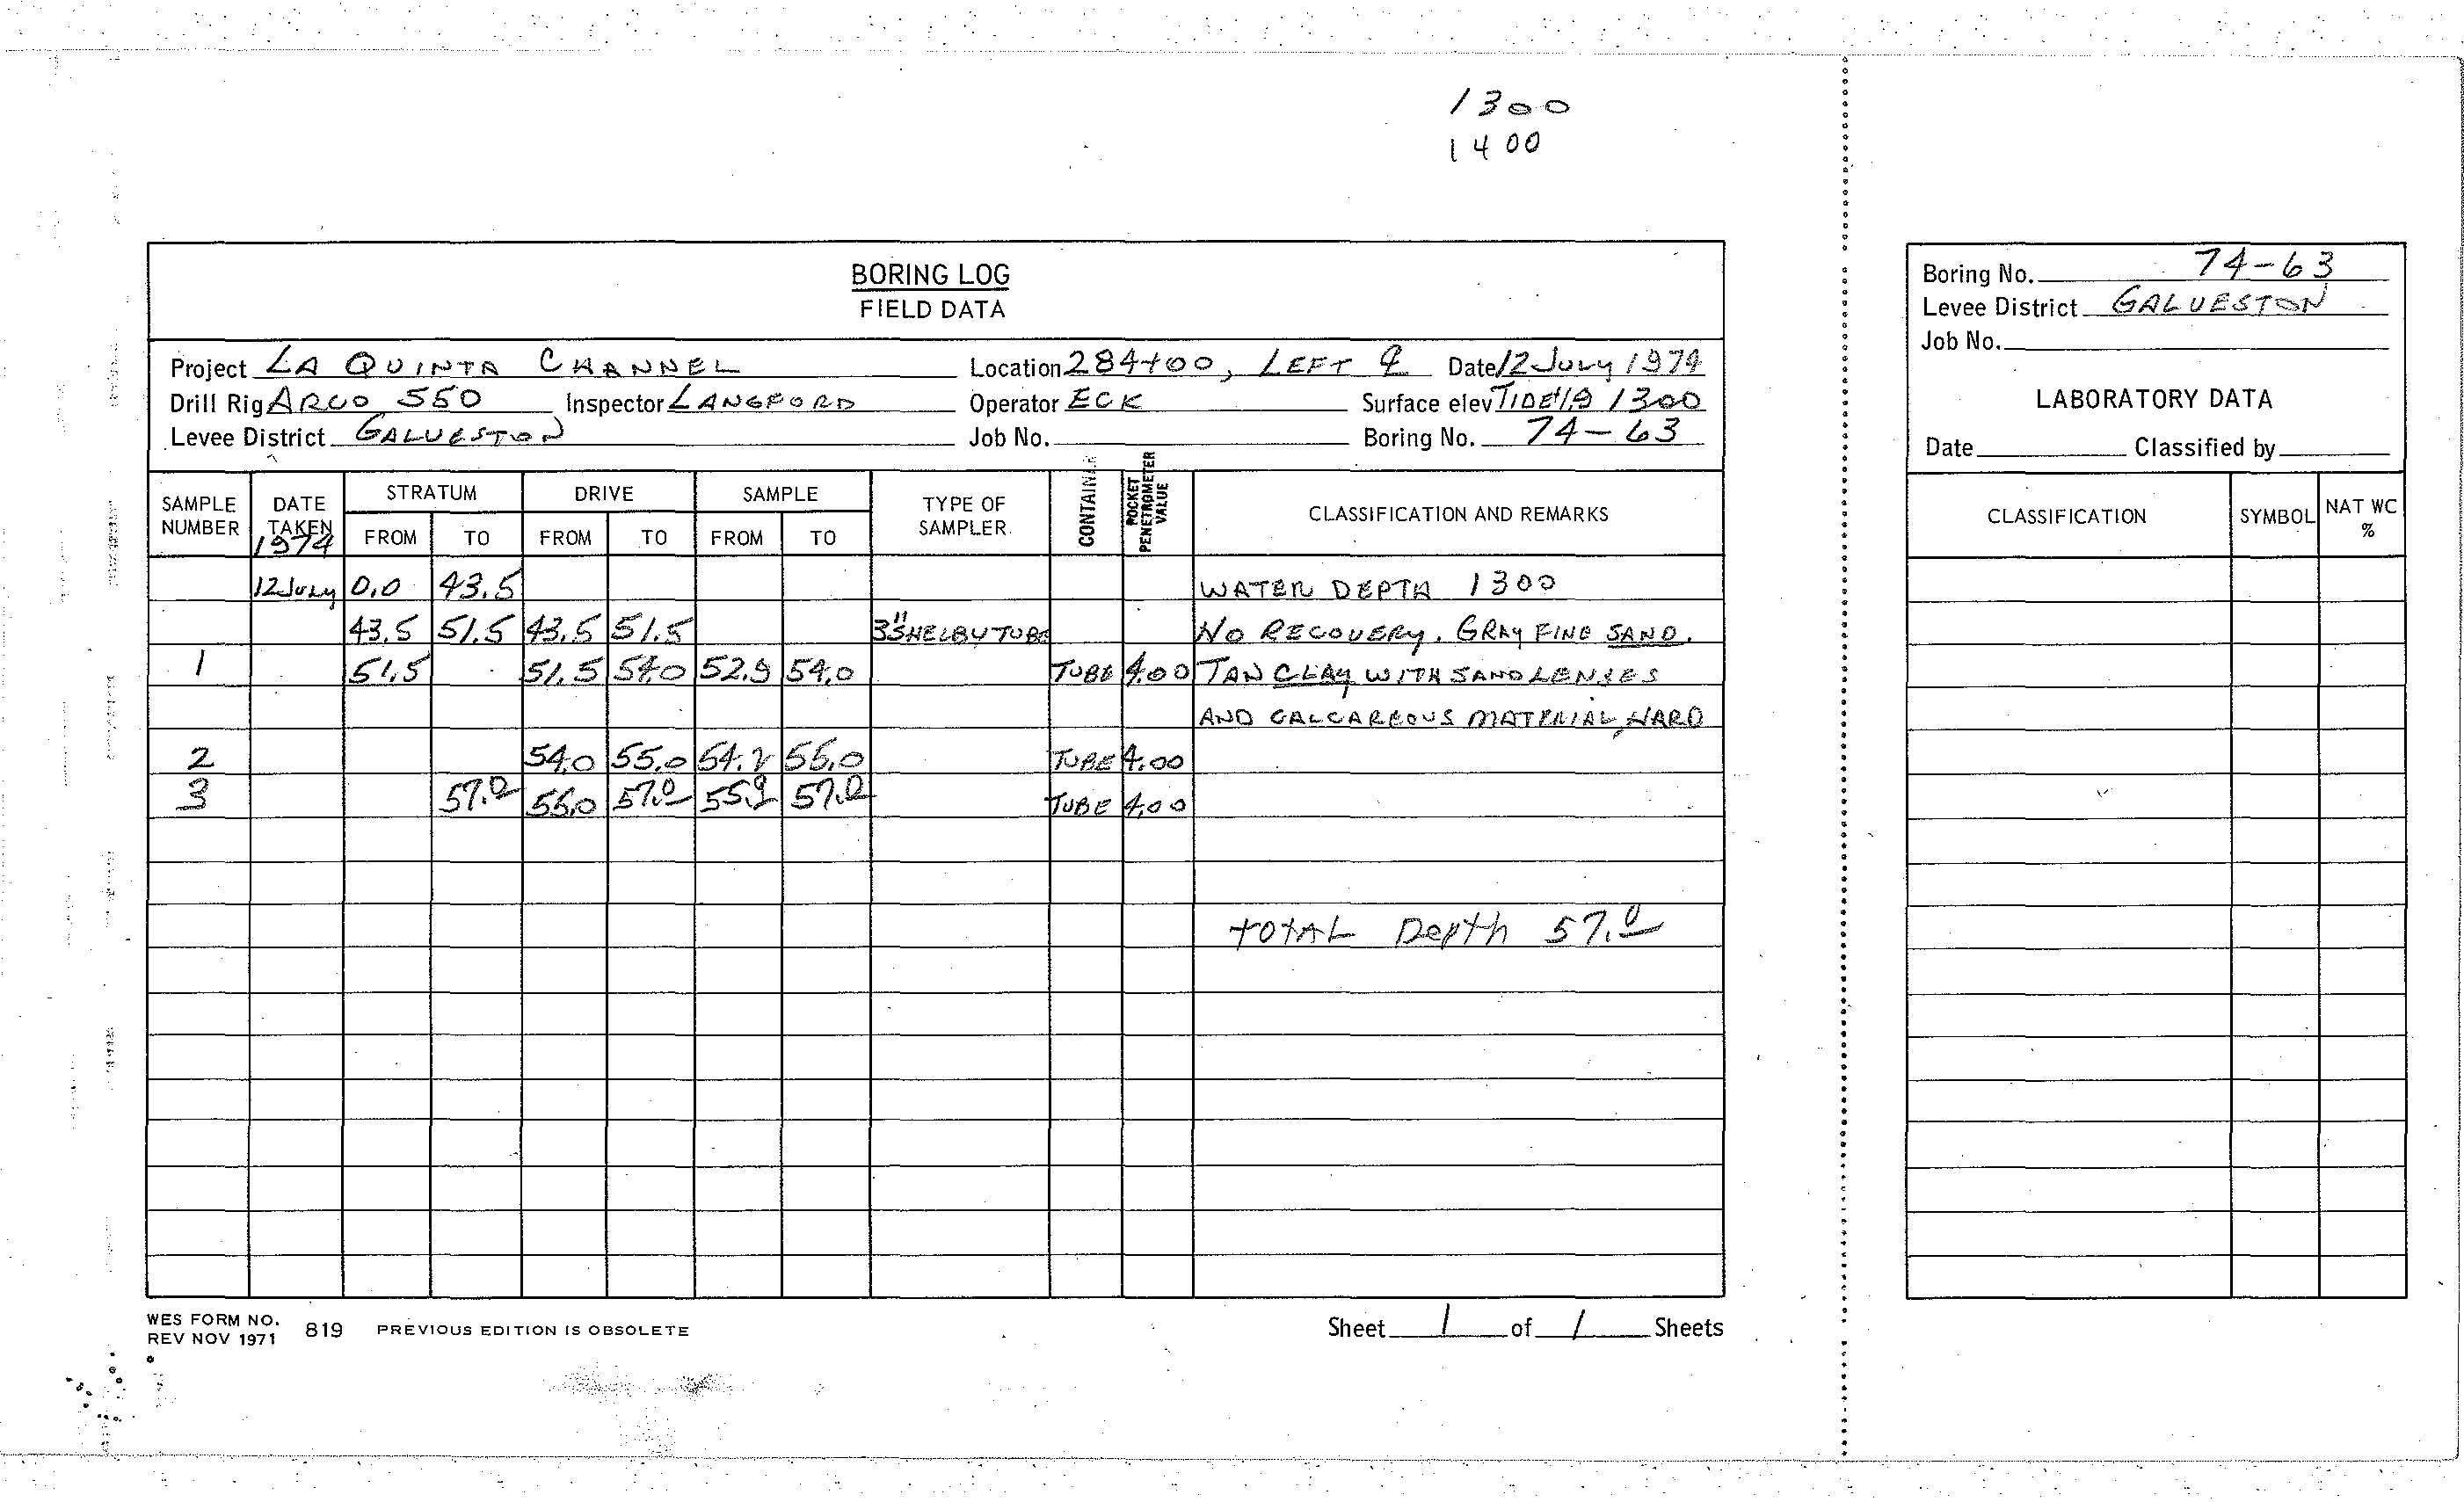 1300
1400
BORING LOG
FIELD DATA
Project LA QUINTA CHANNEL Location 284+00, LEFT ℄ Date 12 JULY 1974
Drill Rig ARCO 550 Inspector LANGFORD Operator ECK Surface elev 1300
Levee District GALVESTON Job No. Boring No. 74-63
SAMPLE NUMBER DATE TAKEN 1974 STRATUM FROM TO DRIVE FROM TO SAMPLE FROM TO TYPE OF SAMPLER CONTAINER POCKET PENETROMETER VALUE CLASSIFICATION AND REMARKS
12 JULY 0.0 43.5 WATER DEPTH 1300
43.5 51.5 43.5 51.5 3" SHELBY TUBE NO RECOVERY. GRAY FINE SAND.
1 51.5 51.5 54.0 52.9 54.0 TUBE 4.00 TAN CLAY WITH SAND LENSES
AND CALCAREOUS MATERIAL, HARD
2 54.0 55.0 54.2 55.0 TUBE 4.00
3 57.0 55.0 57.0 55.9 57.0 TUBE 4.00
TOTAL Depth 57.0
WES FORM NO. 819 PREVIOUS EDITION IS OBSOLETE
REV NOV 1971
Sheet 1 of 1 Sheets
Boring No. 74-63
Levee District GALVESTON
Job No.
LABORATORY DATA
Date Classified by
CLASSIFICATION SYMBOL NAT WC %